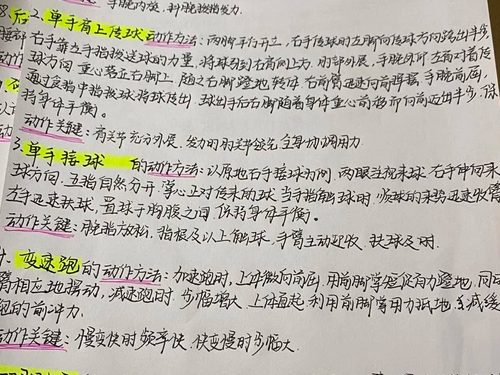 手腕内旋，
后 2. 单手肩上传球 动作方法：两脚平行开立，右手传球时左脚向传球方向跨出半步，
右手靠五手指拨送球的力量，将球引到右肩侧上方，肘部外展，手腕外仰 左肩对着传
球方向 重心落在右脚上，随之右脚蹬地 转体，右前臂迅速向前挥摆，手腕前屈，
通过食指中指拨球将球传出，球出手后右脚随着身体重心前移而向前迈出半步，保
持身体平衡。
动作关键：肩关节充分外展，发力时肘关节领先 全身协调用力
3. 单手接球 的动作方法：以原地右手接球为例，两眼注视来球，右手伸向来
球方向，五指自然分开，掌心正对传来的球，当手指触球时，顺球的来势迅速收臂
左手迅速扶球，置球于胸腹之间，保持身体平衡。
动作关键：腕指放松，指根及以上触球，手臂主动迎收，扶球及时.
4. 变速跑的动作方法：加速跑时，上体微向前倾，用前脚掌短促有力蹬地，同时
臂相应地摆动，减速跑时 步幅增大，上体直起 利用前脚掌用力抵地 减缓
跑的前冲力.
动作关键：慢变快时频率快，快变慢时步幅大.